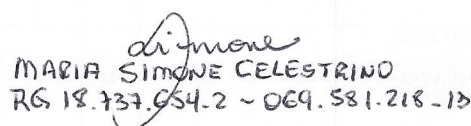 Simone
MARIA SIMONE CELESTRINO
RG 18.737.654-2 ~ 069.581.218-13